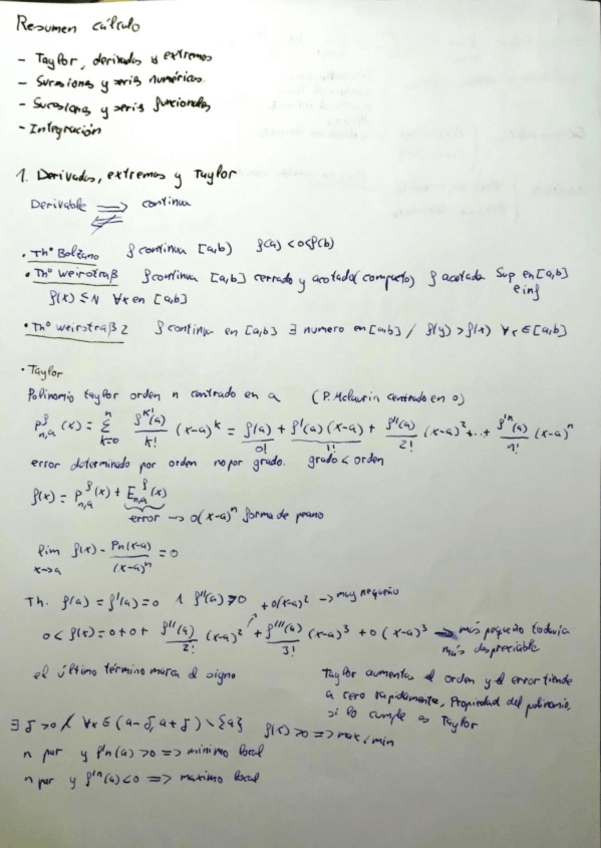 Resumen cálculo
- Taylor, derivadas y extremos
- Sucesiones y series numéricas
- Sucesiones y series funcionales
- Integración
1. Derivadas, extremos y Taylor
Derivable ⟹ continua
⟸̸
· Thº Bolzano f continua [a,b) f(a) < 0 < f(b)
· Thº Weirstraß f continua [a,b] cerrado y acotada (compacto) f acotada Sup en [a,b]
e inf
f(x) ≤ N ∀x en [a,b]
· Thº weirstraß 2 f continua en [a,b] ∃ numero en [a,b] / f(y) > f(x) ∀x ∈ [a,b]
· Taylor
Polinomio taylor orden n centrado en a (P. Mclaurin centrado en 0)
P^f_{n,a}(x) = Σ_{k=0}^{n} f^{k'}(a)/k! (x-a)^k = f(a)/0! + f'(a)(x-a)/1! + f''(a)/2! (x-a)^2 + ... + f'^n(a)/n! (x-a)^n
error determinado por orden no por grado. grado < orden
f(x) = P^f_{n,a}(x) + E^f_{n,a}(x)
error → o(x-a)^n forma de peano
lim_{x→a} f(x) - Pn(x-a)/(x-a)^n = 0
Th. f(a) = f'(a) = 0 ∧ f''(a) ≠ 0 + o(x-a)^2 → muy pequeño
0 < f(x) = 0 + 0 + f''(a)/2! (x-a)^2 + f'''(a)/3! (x-a)^3 + o(x-a)^3 → más pequeño todavía
más despreciable
el último término marca el signo
Taylor aumentas el orden y el error tiende
a cero rapidamente, Propiedad del polinomio,
si lo cumple es Taylor
∃ δ > 0 / ∀x ∈ (a-δ, a+δ) \ {a} f(x) > 0 => max/min
n par y f'^n(a) > 0 => minimo local
n par y f'^n(a) < 0 => maximo local